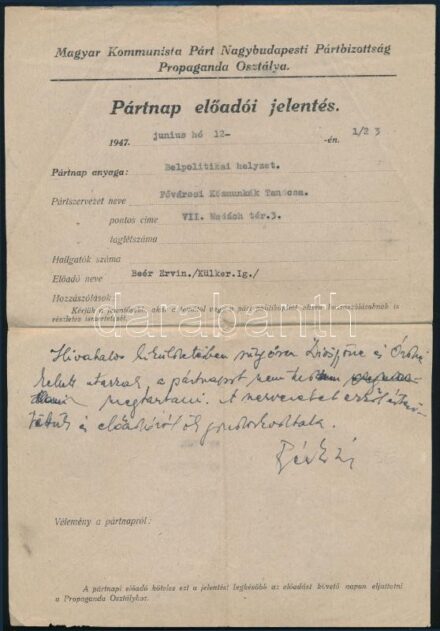 Magyar Kommunista Párt Nagybudapesti Pártbizottság
Propaganda Osztálya.
Pártnap előadói jelentés.
1947. junius hó 12- -én. 1/2 3
Pártnap anyaga: Belpolitikai helyzet.
Pártszervezet neve Fővárosi Közmunkák Tanácsa.
pontos címe VII. Madách tér.3.
taglétszáma
Hallgatók száma
Előadó neve Beér Ervin./Külker.Ig./
Hozzászólások:
Kérjük a jelentőket, akik a
részletes ismertetését.
darabanth
Hivatalos kiküldetésben sürgősen és
kellett utaznak, a pártnapot nem
megtartani. A szervezetet erről
és előadóról ők gondoskodtak.
Vélemény a pártnapról:
A pártnapi előadó köteles ezt a jelentést legkésőbb az előadást követő napon eljuttatni
a Propaganda Osztályhoz.